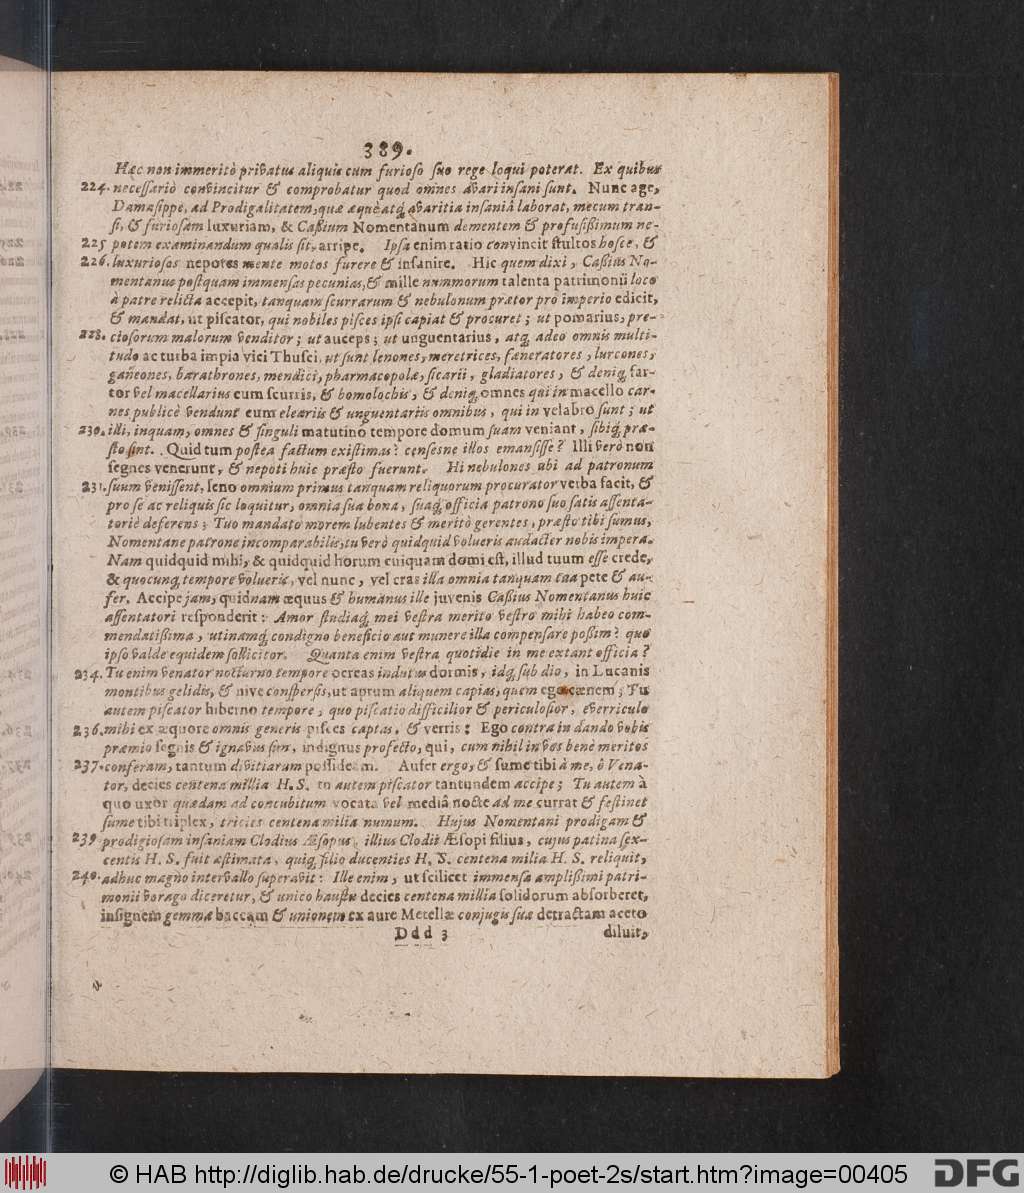 389.
Hæc non immeritò privatus aliquis cum furioso suo rege loqui poterat. Ex quibus
224. necessariò convincitur & comprobatur quod omnes avari insani sunt. Nunc age,
Damasippe, ad Prodigalitatem, quæ æquè atq; avaritia insaniâ laborat, mecum tran-
si, & furiosam luxuriam, & Caßium Nomentanum dementem & profusißimum ne-
225 potem examinandum qualis sit, arripe. Ipsa enim ratio convincit stultos hosce, &
226. luxuriosos nepotes mente motos furere & insanire. Hic quem dixi, Caßius No-
mentanus postquam immensas pecunias, & mille nummorum talenta patrimonii loco
à patre relicta accepit, tanquam scurrarum & nebulonum prætor pro imperio edicit,
& mandat, ut piscator, qui nobiles pisces ipsi capiat & procuret; ut pomarius, pre-
228. ciosorum malorum venditor; ut auceps; ut unguentarius, atq; adeo omnis multi-
tudo ac turba impia vici Thusci, ut sunt lenones, meretrices, fæneratores, lurcones,
ganeones, barathrones, mendici, pharmacopolæ, sicarii, gladiatores, & deniq; far-
tor vel macellarius cum scurris, & bomolochis, & deniq; omnes qui in macello car-
nes publicè vendunt cum eleariis & unguentariis omnibus, qui in velabro sunt; ut
230. illi, inquam, omnes & singuli matutino tempore domum suam veniant, sibiq; præ-
sto sint. Quid tum postea factum existimas? censesne illos emansisse? Illi verò non
segnes venerunt, & nepoti huic præsto fuerunt. Hi nebulones ubi ad patronum
231. suum venissent, leno omnium primus tanquam reliquorum procurator verba facit, &
pro se ac reliquis sic loquitur, omnia sua bona, suaq; officia patrono suo satis assenta-
toriè deferens; Tuo mandato morem lubentes & meritò gerentes, præsto tibi sumus,
Nomentane patrone incomparabilis, tu verò quidquid volueris audacter nobis impera.
Nam quidquid mihi, & quidquid horum cuiquam domi est, illud tuum esse crede,
& quocunq; tempore volueris, vel nunc, vel cras illa omnia tanquam tua pete & au-
fer. Accipe jam, quidnam æquus & humanus ille juvenis Caßius Nomentanus huic
assentatori responderit: Amor studiaq; mei vestra merito vestro mihi habeo com-
mendatißima, utinamq; condigno beneficio aut munere illa compensare poßim? quo
ipso valde equidem sollicitor. Quanta enim vestra quotidie in me extant officia?
234. Tu enim venator nocturno tempore ocreas indutus dormis, idq; sub dio, in Lucanis
montibus gelidis, & nive conspersis, ut aprum aliquem capias, quem ego cænem; Tu
autem piscator hiberno tempore, quo piscatio difficilior & periculosior, everriculo
236. mihi ex æquore omnis generis pisces captas, & verris: Ego contra in dando vobis
præmio segnis & ignavus sim, indignus profecto, qui, cum nihil in vos benè meritos
237. conferam, tantum divitiarum possideam. Aufer ergo, & sume tibi à me, ô Vena-
tor, decies centena millia H. S. tu autem piscator tantundem accipe; Tu autem à
quo uxor quædam ad concubitum vocata vel mediâ nocte ad me currat & festinet
sume tibi triplex, tricies centena milia numum. Hujus Nomentani prodigam &
239 prodigiosam insaniam Clodius Æsopus, illius Clodii Æsopi filius, cujus patina sex-
centis H. S. fuit æstimata, quiq; filio ducenties H. S. centena milia H. S. reliquit,
240. adhuc magno intervallo superavit: Ille enim, ut scilicet immensa amplißimi patri-
monii vorago diceretur, & unico haustu decies centena millia solidorum absorberet,
insignem gemmæ baccam & unionem ex aure Metellæ conjugis suæ detractam aceto
Ddd 3
diluit,
© HAB http://diglib.hab.de/drucke/55-1-poet-2s/start.htm?image=00405
DFG